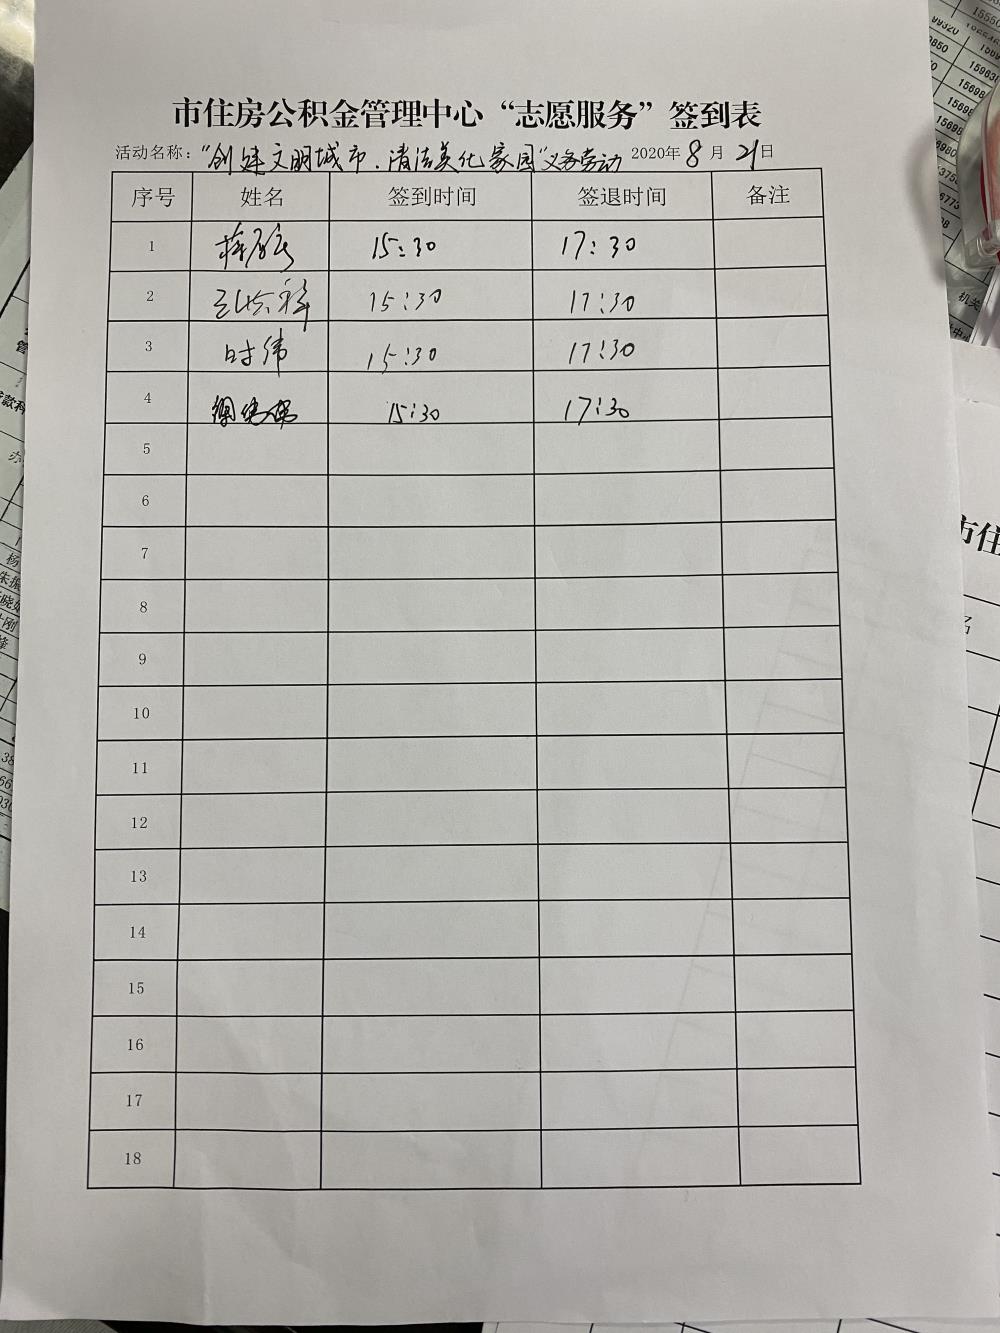 市住房公积金管理中心“志愿服务”签到表
活动名称：“创建文明城市.清洁美化家园”义务劳动 2020年 8 月 21 日
序号 姓名 签到时间 签退时间 备注
1 15:30 17:30
2 15:30 17:30
3 时伟 15:30 17:30
4 15:30 17:30
5
6
7
8
9
10
11
12
13
14
15
16
17
18
市住
名
机关